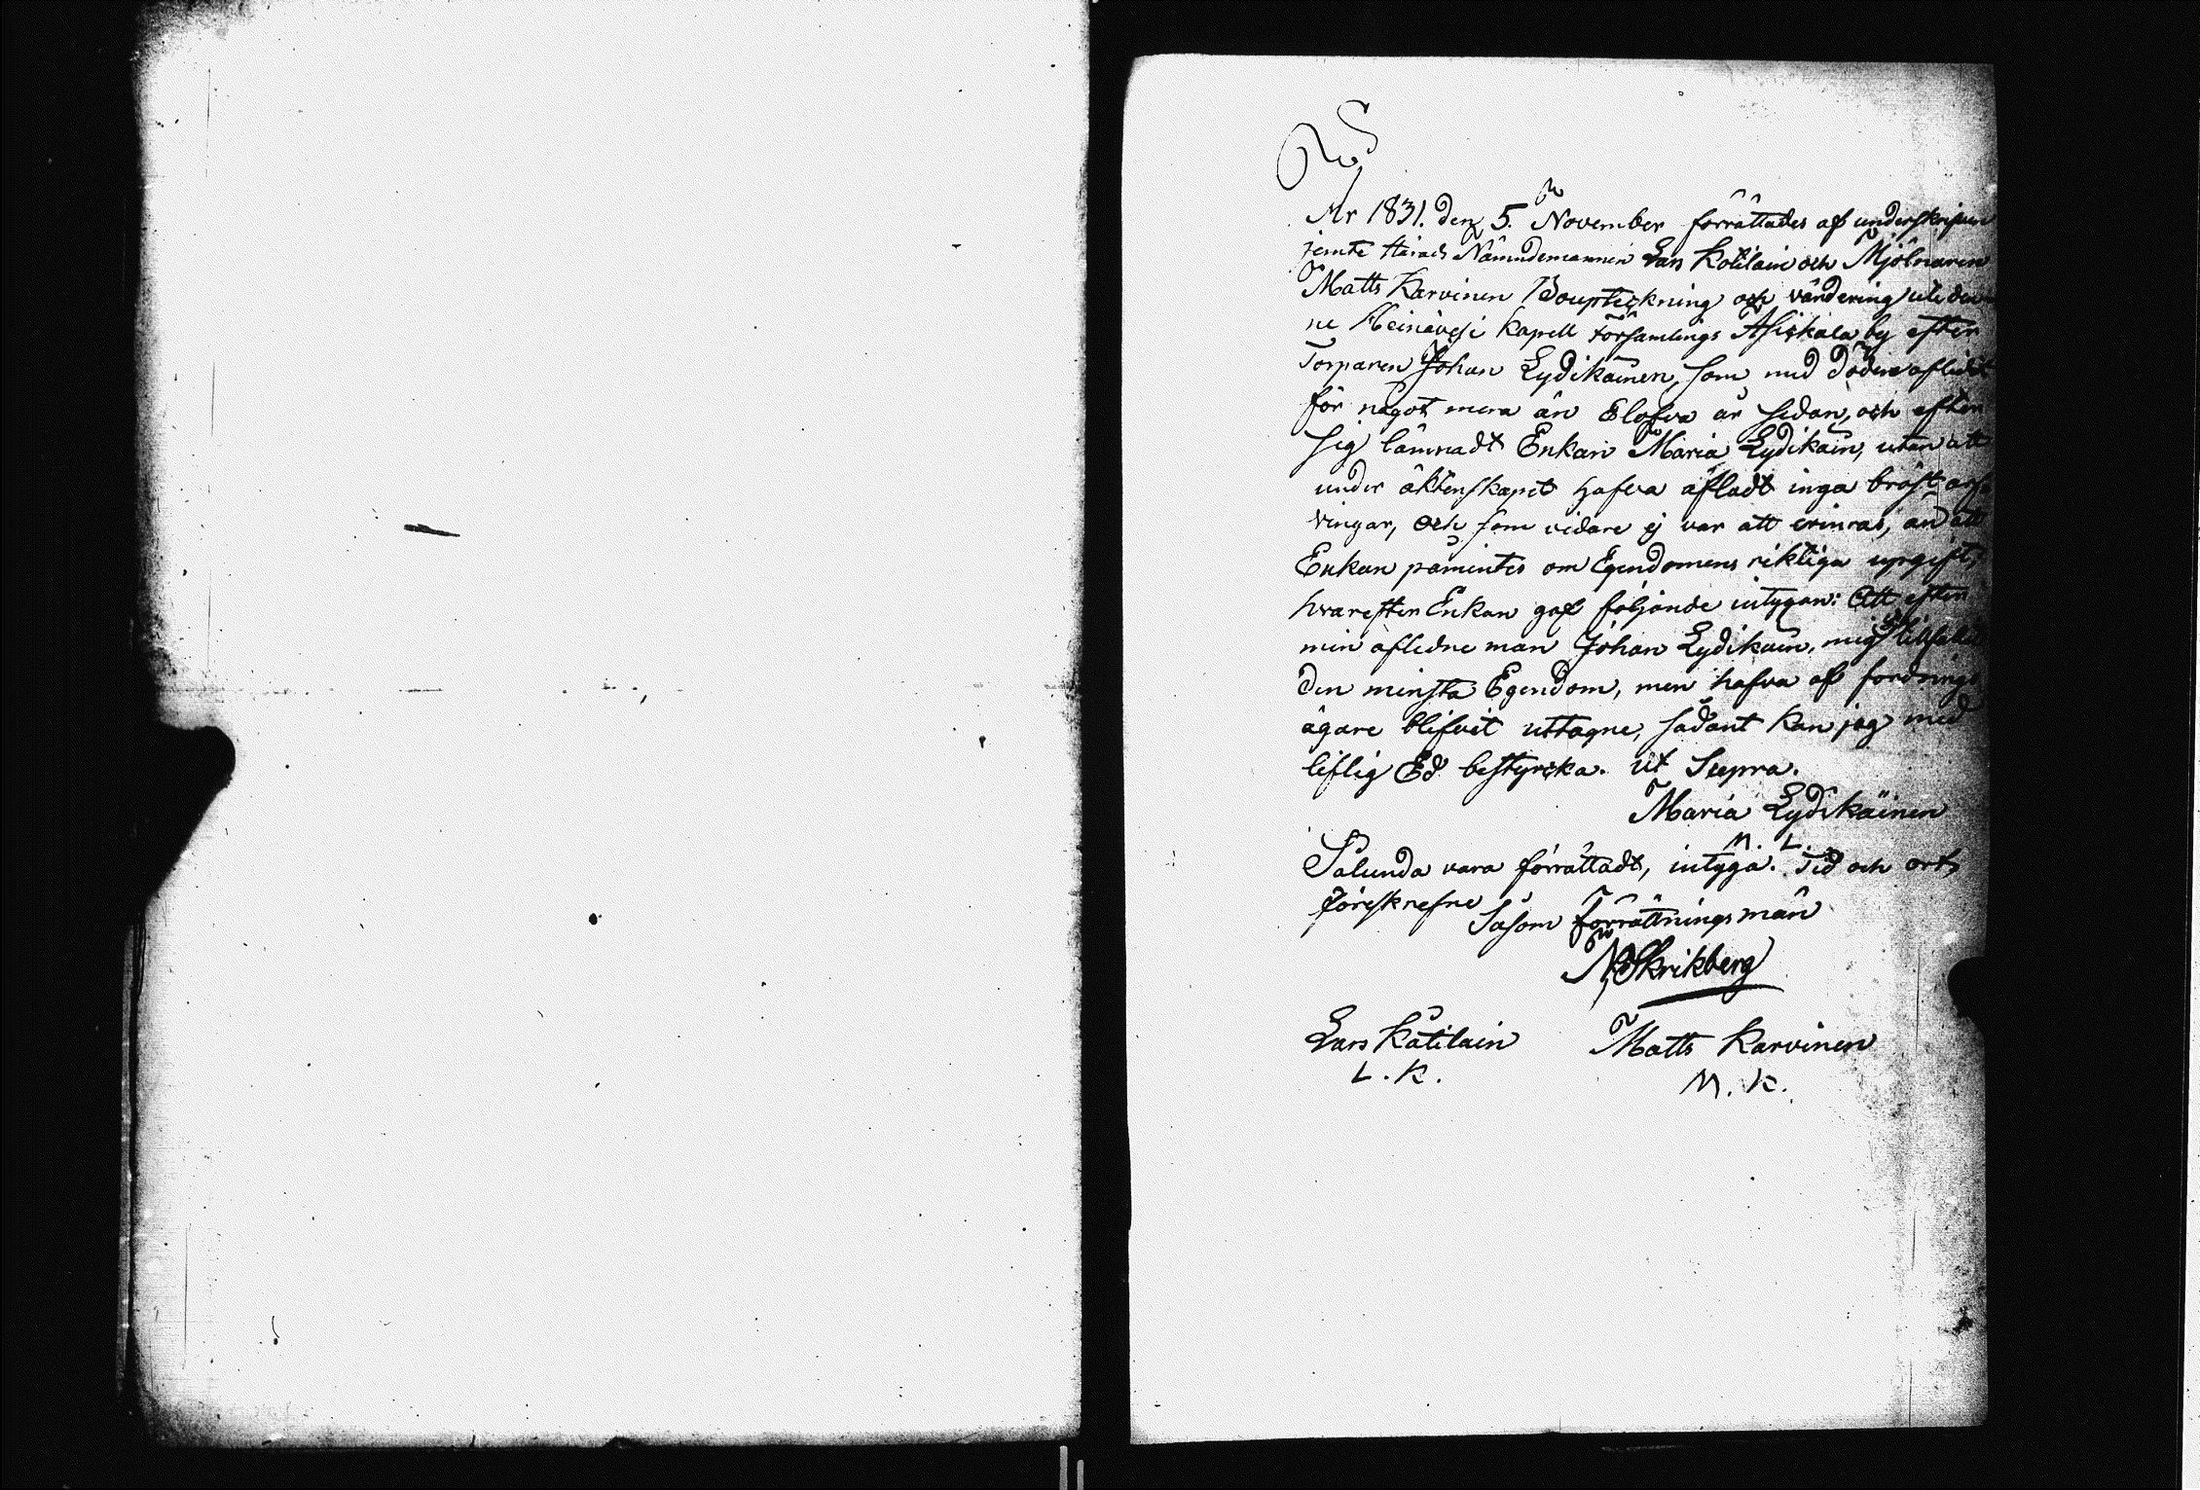 År 1831. den 5. November förrättades af underskrifven
jemte Härads Nämndemannen Lars Kotilain och Mjölnaren
Matts Karvinen Bouptekning och värdering uti den
ne Heinävesi Kapell Församlings Asikala by efter
Torparen Johan Lydikäinen, som med döden aflidit
för något mera än Elofva år sedan, och efter
sig lämnadt Enkan Maria Lydikäin, utan att
under äktenskapet hafva afladt inga bröst arf
vingar, och som vidare ej var att erinras, än att
Enkan påmintes om Egendomens riktiga uprgift,
hvarefter Enkan gaf följande intygan: Att efter
min afledne man Johan Lydikain, mig ej tillfallit
den minsta Egendom, men hafva af fordrings
ägare blifvit uttagne, sådant kan jag med
liflig Ed bestyrcka. Ut Supra.
Maria Lydikäinen
M. L.
Sålunda vara förrättadt, intyga. Tid och ort,
föreskrefne
Såsom Förrättningsmän
Skrikberg
Lars Kåtilain
L. K.
Matts Karvinen
M. K.